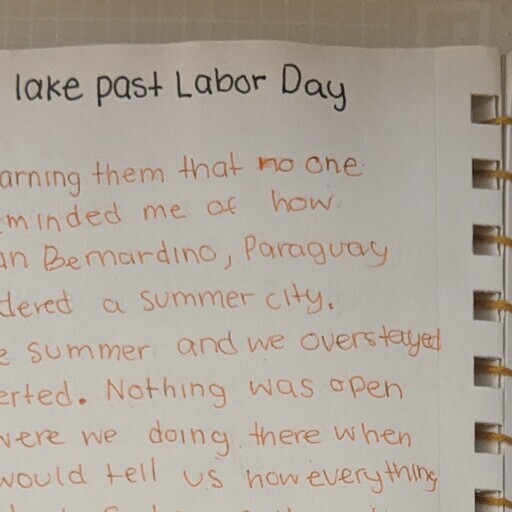 lake past Labor Day
arning them that no one
minded me of how
an Bernardino, Paraguay
dered a summer city.
e summer and we overstayed
erted. Nothing was open
were we doing there when
would tell us how everything